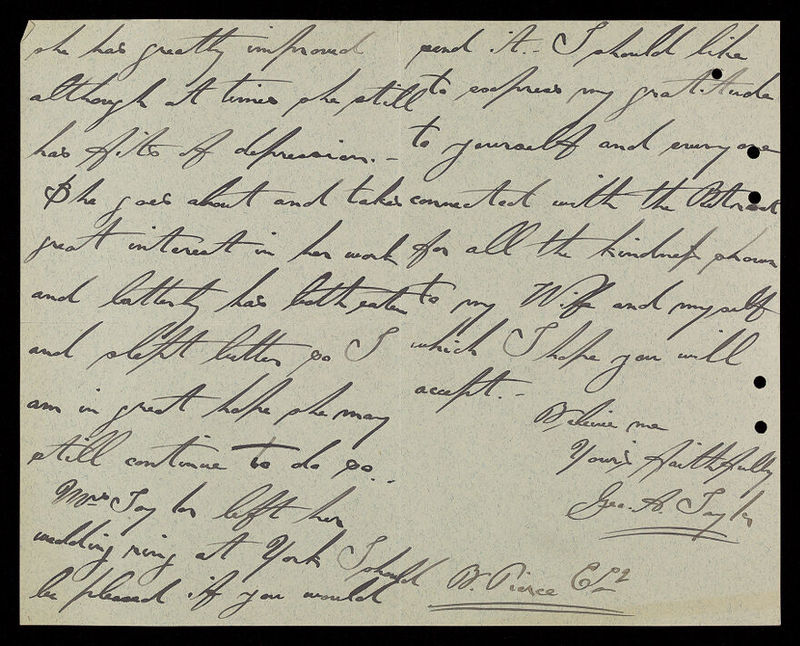 she has greatly improved
although at times she still
has fits of depression. –
She goes about and takes
great interest in her work
and latterly has both eaten
and slept better so I
am in great hope she may
still continue to do so..
Mrs Taylor left her
wedding ring at York I should
be pleased if you would
send it. – I should like
to express my gratitude
to yourself and everyone
connected with the Retreat
for all the kindness shown
to my Wife and myself
which I hope you will
accept. –
Believe me
Yours faithfully
Geo. A. Taylor
B. Pierce Esq